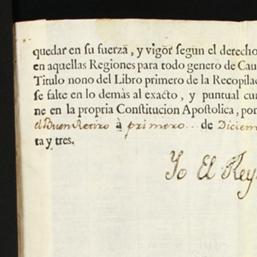 quedar en su fuerza, y vigor segun el derecho
en aquellas Regiones para todo genero de Cau
Titulo nono del Libro primero de la Recopilac
se falte en lo demàs al exacto, y puntual cum
ne en la propria Constitucion Apostolica, por
el Buen Retiro à primero.. de Diciem
ta y tres.
Yo El Rey